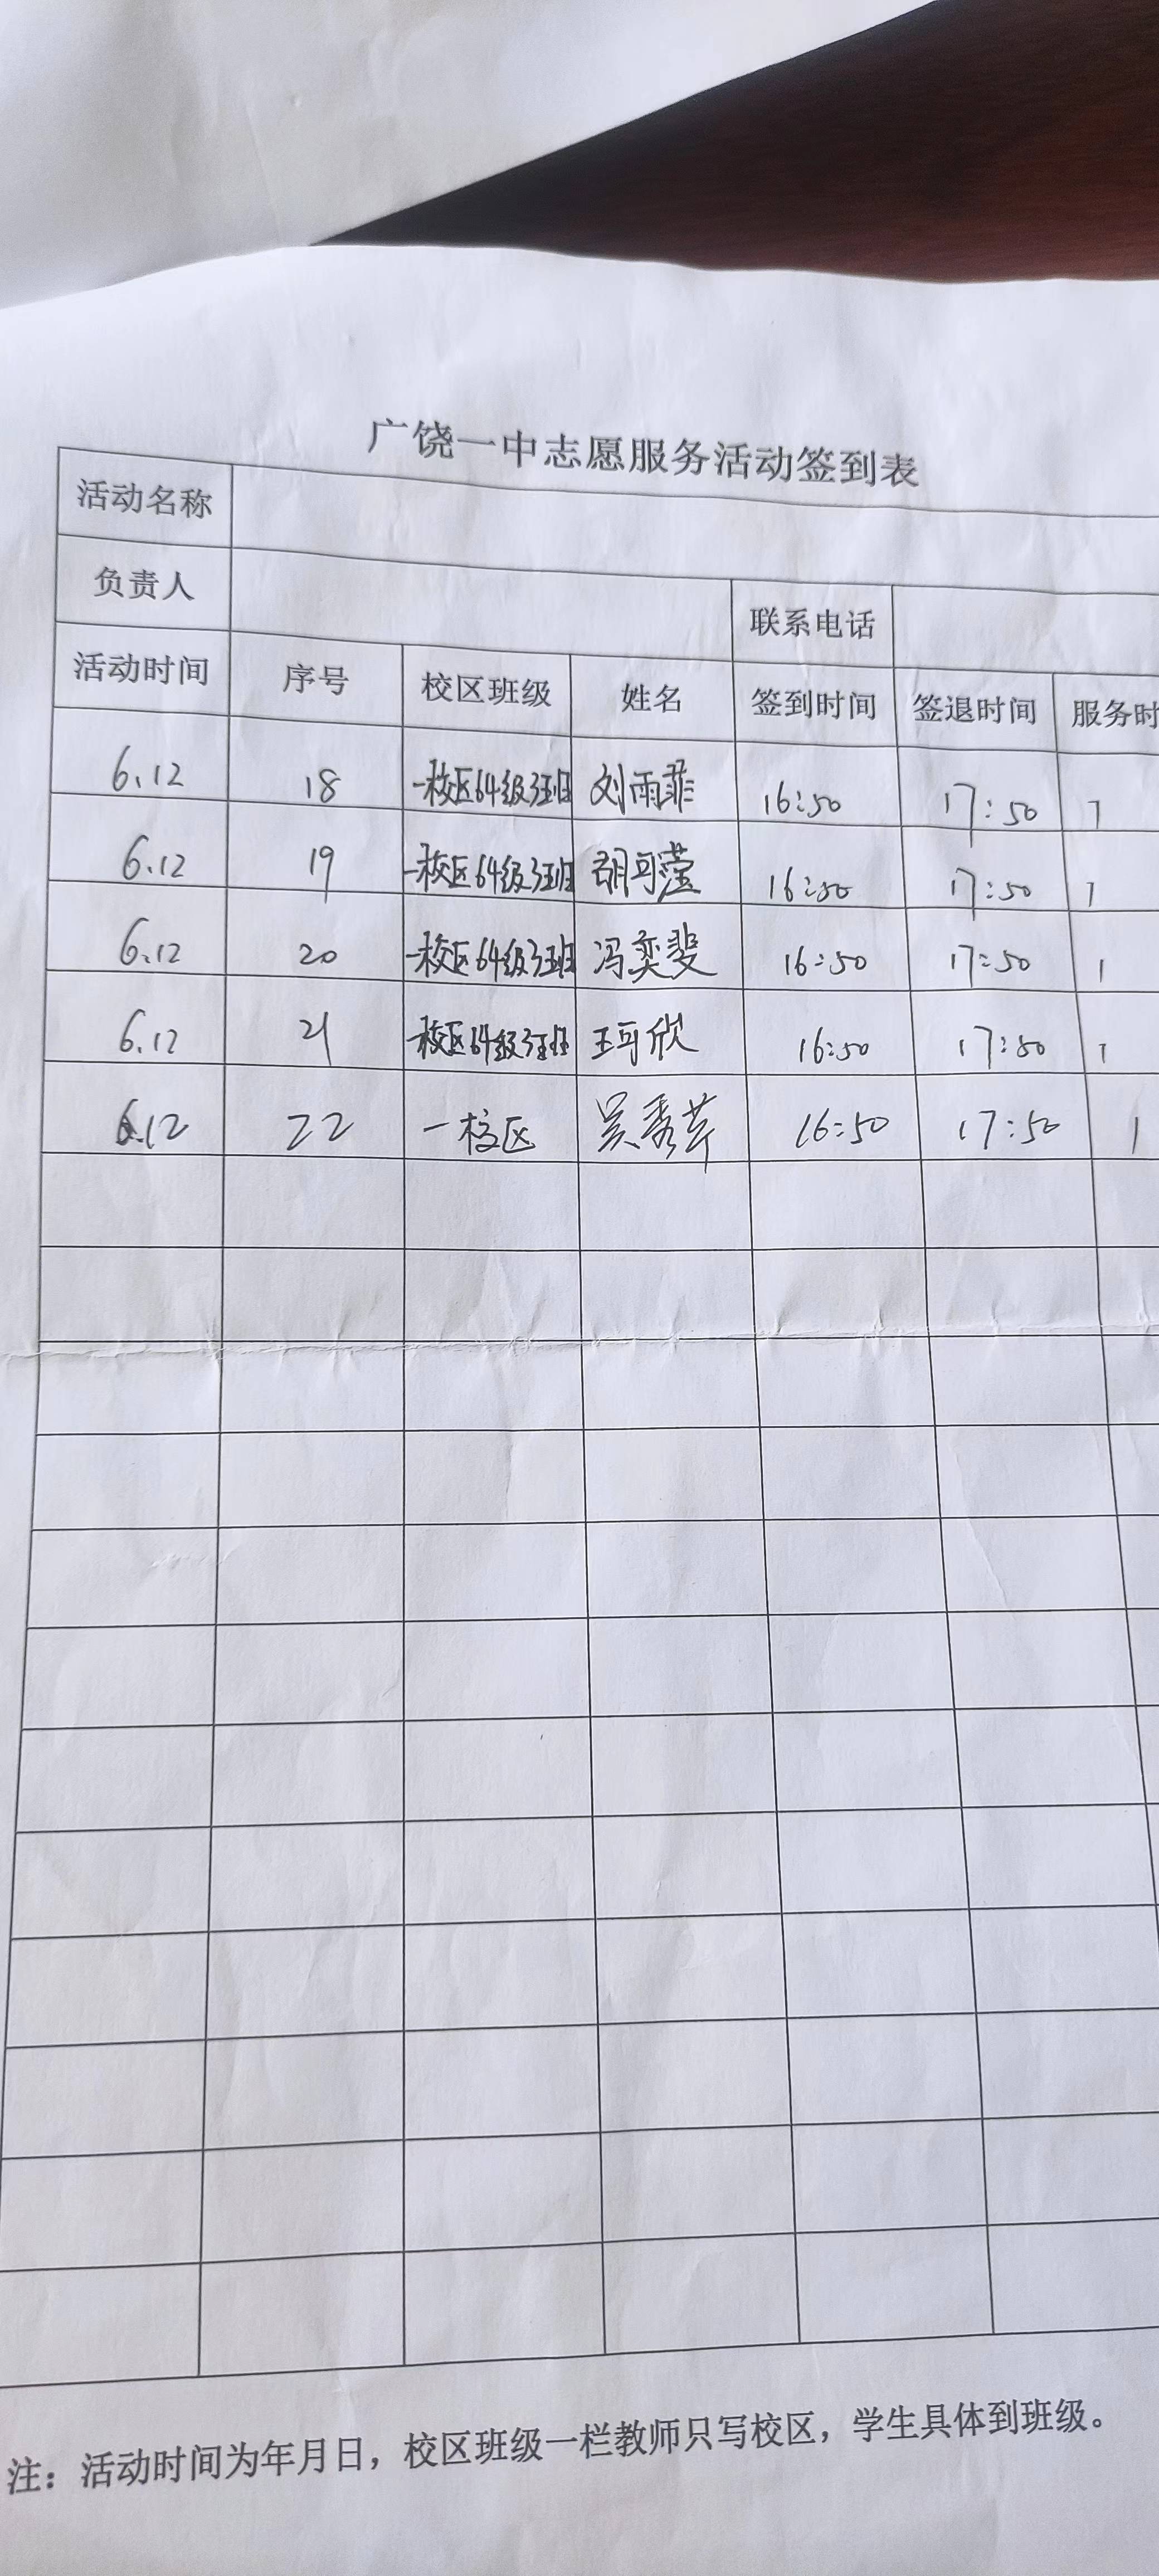 广饶一中志愿服务活动签到表
活动名称
负责人 联系电话
活动时间 序号 校区班级 姓名 签到时间 签退时间 服务时
6.12 18 一校区64级3班 刘雨菲 16:50 17:50 1
6.12 19 一校区64级3班 胡可莹 16:50 17:50 1
6.12 20 一校区64级3班 冯奕斐 16:50 17:50 1
6.12 21 一校区64级3班 王可欣 16:50 17:50 1
6.12 22 一校区 吴秀芹 16:50 17:50 1
注：活动时间为年月日，校区班级一栏教师只写校区，学生具体到班级。